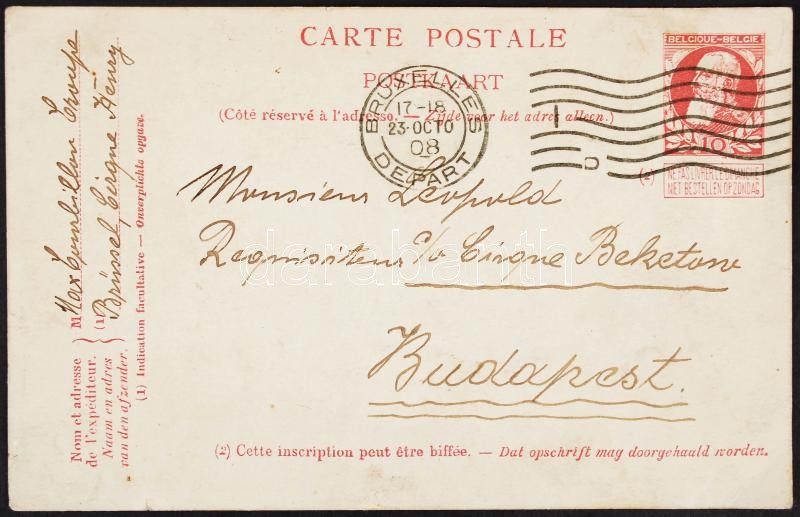 CARTE POSTALE
POSTKAART
(Côté réservé à l'adresse. — Zijde voor het adres alleen.)
BELGIQUE-BELGIE
10
NE PAS LIVRER LE DIMANCHE
NIET BESTELLEN OP ZONDAG
(2)
BRUXELLES
17-18
23·OCTO
08
DEPART
D
Monsieur Leopold
Requisiteur c/o Cirque Beketow
Budapest.
darabanth
(2) Cette inscription peut être biffée. — Dat opschrift mag doorgehaald worden.
Nom et adresse
de l'expéditeur.
Naam en adres
van den afzender.
M Max Troupe
(1) Brüssel Cirque Henry
(1) Indication facultative — Onverplichte opgave.